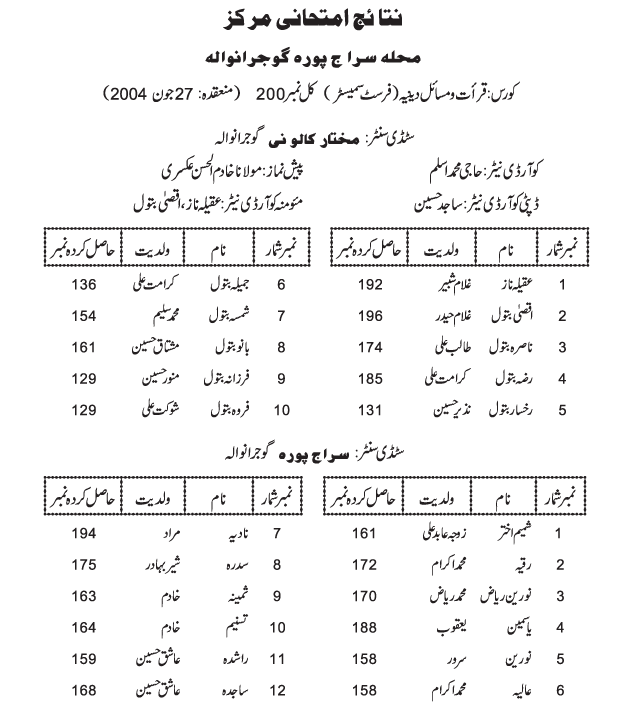 نتائج امتحانی مرکز
محله سراج پوره گوجرانواله
کورس: قرأت ومسائل دینیہ (فرسٹ سمیسٹر) کل نمبر 200 (منعقدہ: 27 جون 2004)
سٹڈی سنٹر: مختار کالونی گوجرانوالہ
کوآرڈی نیٹر: حاجی محمد اسلم پیش نماز: مولانا خادم الحسن عکسری
ڈپٹی کوآرڈی نیٹر: ساجد حسین مئومنہ کوآرڈی نیٹر: عقیلہ ناز، اقصیٰ بتول
نمبر شمار نام ولدیت حاصل کردہ نمبر نمبر شمار نام ولدیت حاصل کردہ نمبر
1 عقیلہ ناز غلام شبیر 192 6 جمیلہ بتول کرامت علی 136
2 اقصیٰ بتول غلام حیدر 196 7 شمسہ بتول محمد سلیم 154
3 ناصرہ بتول طالب علی 174 8 بانو بتول مشتاق حسین 161
4 رضہ بتول کرامت علی 185 9 فرزانہ بتول منور حسین 129
5 رخسار بتول نذیر حسین 131 10 فروہ بتول شوکت علی 129
سٹڈی سنٹر: سراج پورہ گوجرانوالہ
نمبر شمار نام ولدیت حاصل کردہ نمبر نمبر شمار نام ولدیت حاصل کردہ نمبر
1 شمیم اختر زوجہ عابد علی 161 7 نادیہ مراد 194
2 رقیہ محمد اکرام 172 8 سدرہ شیر بہادر 175
3 نورین ریاض محمد ریاض 170 9 ثمینہ خادم 163
4 یاسمین یعقوب 188 10 تسنیم خادم 164
5 نورین سرور 158 11 راشدہ عاشق حسین 159
6 عالیہ محمد اکرام 158 12 ساجدہ عاشق حسین 168